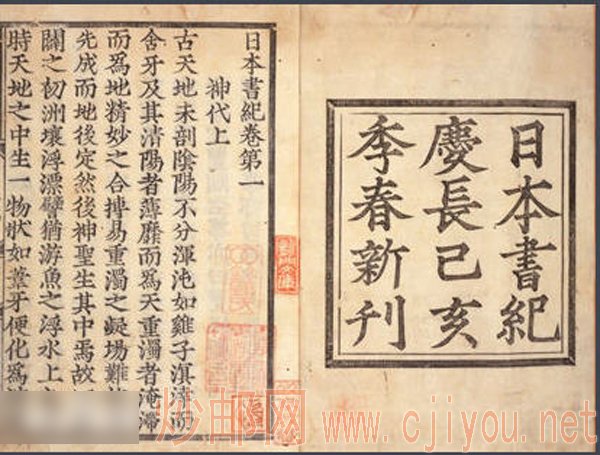 日本書紀
慶長己亥
季春新刊
日本書紀卷第一
神代上
古天地未剖陰陽不分渾沌如雞子溟涬而
含牙及其清陽者薄靡而爲天重濁者淹滯
而爲地精妙之合摶易重濁之凝場難
先成而地後定然後神聖生其中焉故
闢之初洲壤浮漂譬猶游魚之浮水上
時天地之中生一物狀如葦牙便化爲
炒邮网 www.cjiyou.net